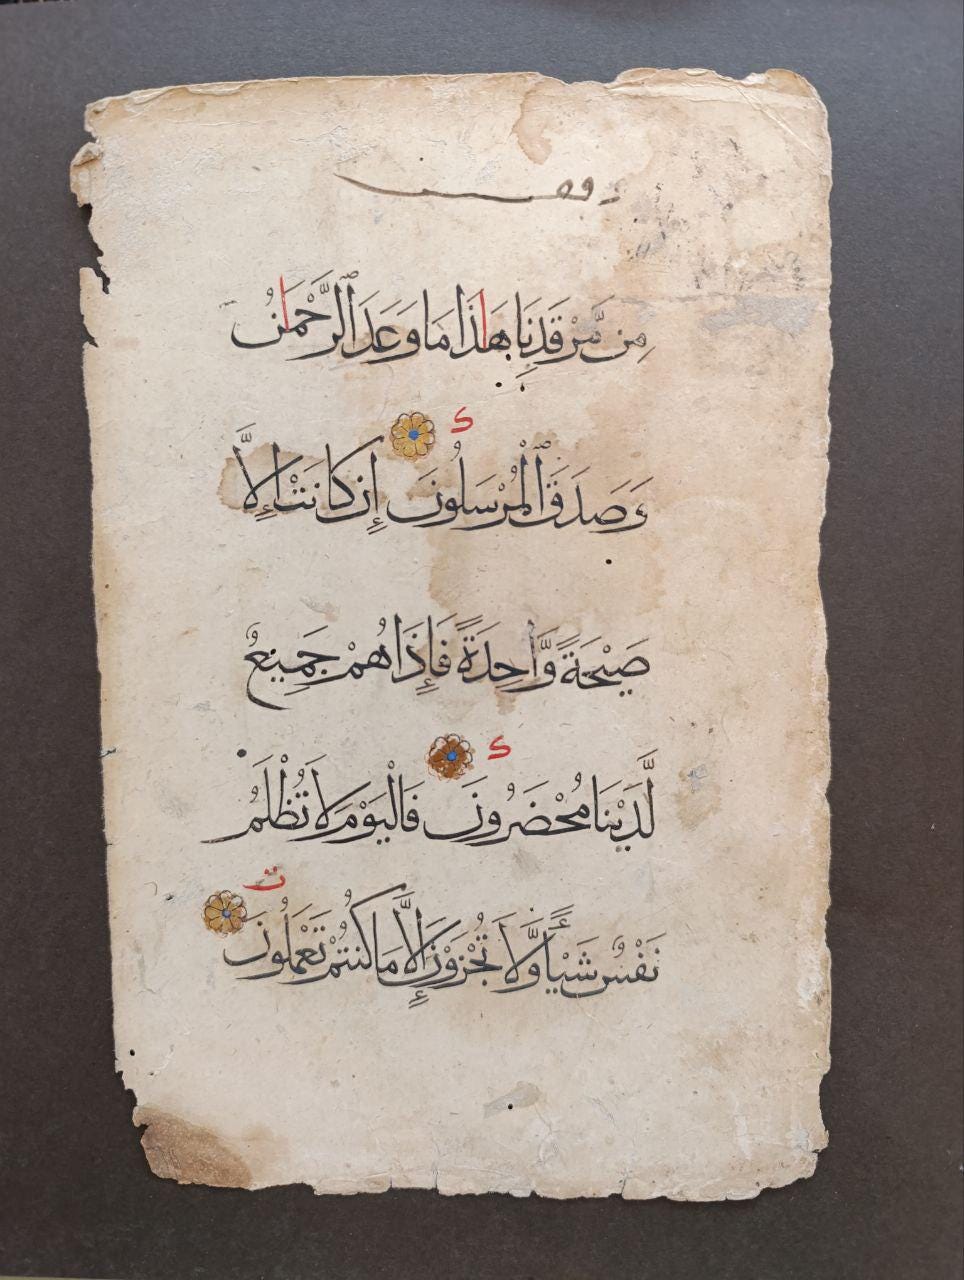 وقف
مِن مَّرْقَدِنَا هَاذَا مَا وَعَدَ ٱلرَّحْمَانُ
ك
وَصَدَقَ ٱلْمُرْسَلُونَ إِن كَانَتْ إِلَّا
صَيْحَةً وَّاحِدَةً فَإِذَا هُمْ جَمِيعٌ
ك
لَّدَيْنَا مُحْضَرُونَ فَالْيَوْمَ لَا تُظْلَمُ
ت
نَفْسٌ شَيْـًٔا وَّلَا تُجْزَوْنَ إِلَّا مَا كُنتُمْ تَعْمَلُونَ